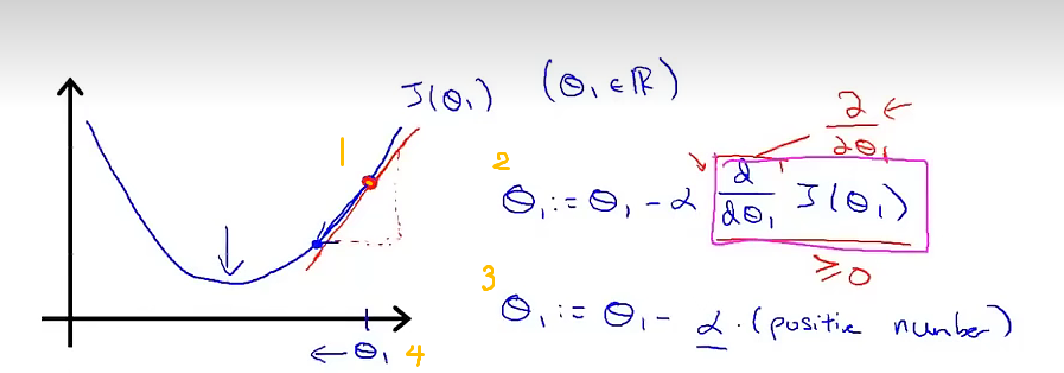 J(θ₁) (θ₁ ∈ ℝ)
∂
∂θ₁
1
2
θ₁ := θ₁ - α d/dθ₁ J(θ₁)
≥0
3
θ₁ := θ₁ - α · (positive number)
θ₁ 4